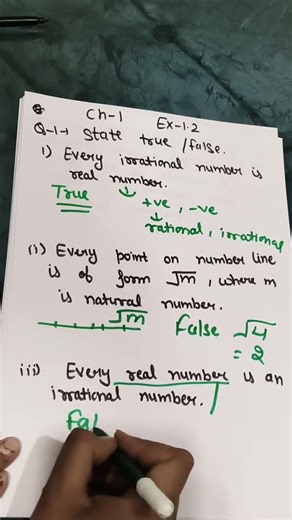 Ch-1 Ex-1.2
Q-1-1 State true /false.
i) Every irrational number is
real number.
True +ve, -ve
rational, irrational
(i) Every point on number line
is of form √m, where m
is natural number.
√m False √4
= 2
iii) Every real number is an
irrational number.
Fal